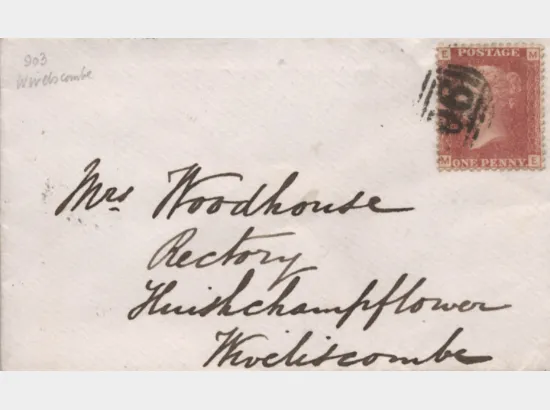 903
Wiveliscombe
E POSTAGE M
M ONE PENNY E
Mrs Woodhouse
Rectory
Huishchampflower
Wiveliscombe